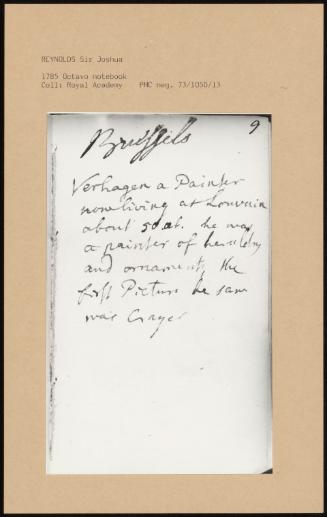 REYNOLDS Sir Joshua
1785 Octavo notebook
Coll: Royal Academy PMC neg. 73/1050/13
9
Brussels
Verhagen a Painter
now living at Louvain
about 50 he was
a painter of heraldry
and ornaments the
first Picture he saw
was Crayer